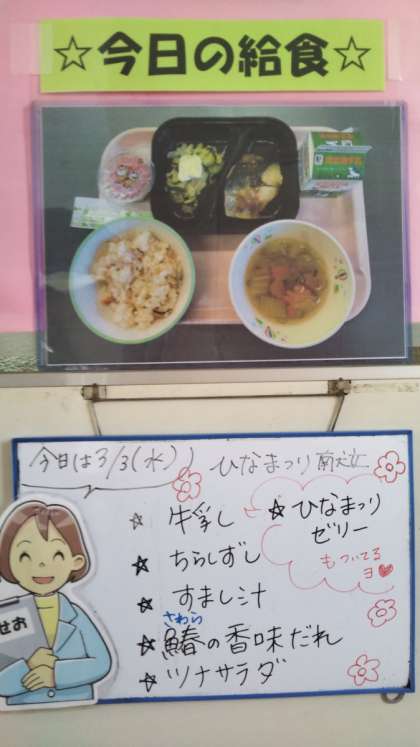 ☆今日の給食☆
今日は3/3(水)
ひなまつり献立
☆牛乳
☆ちらしずし
☆すまし汁
さわら
☆鰆の香味だれ
☆ツナサラダ
☆ひなまつり
ゼリー
もついてる
ヨ♥
せお